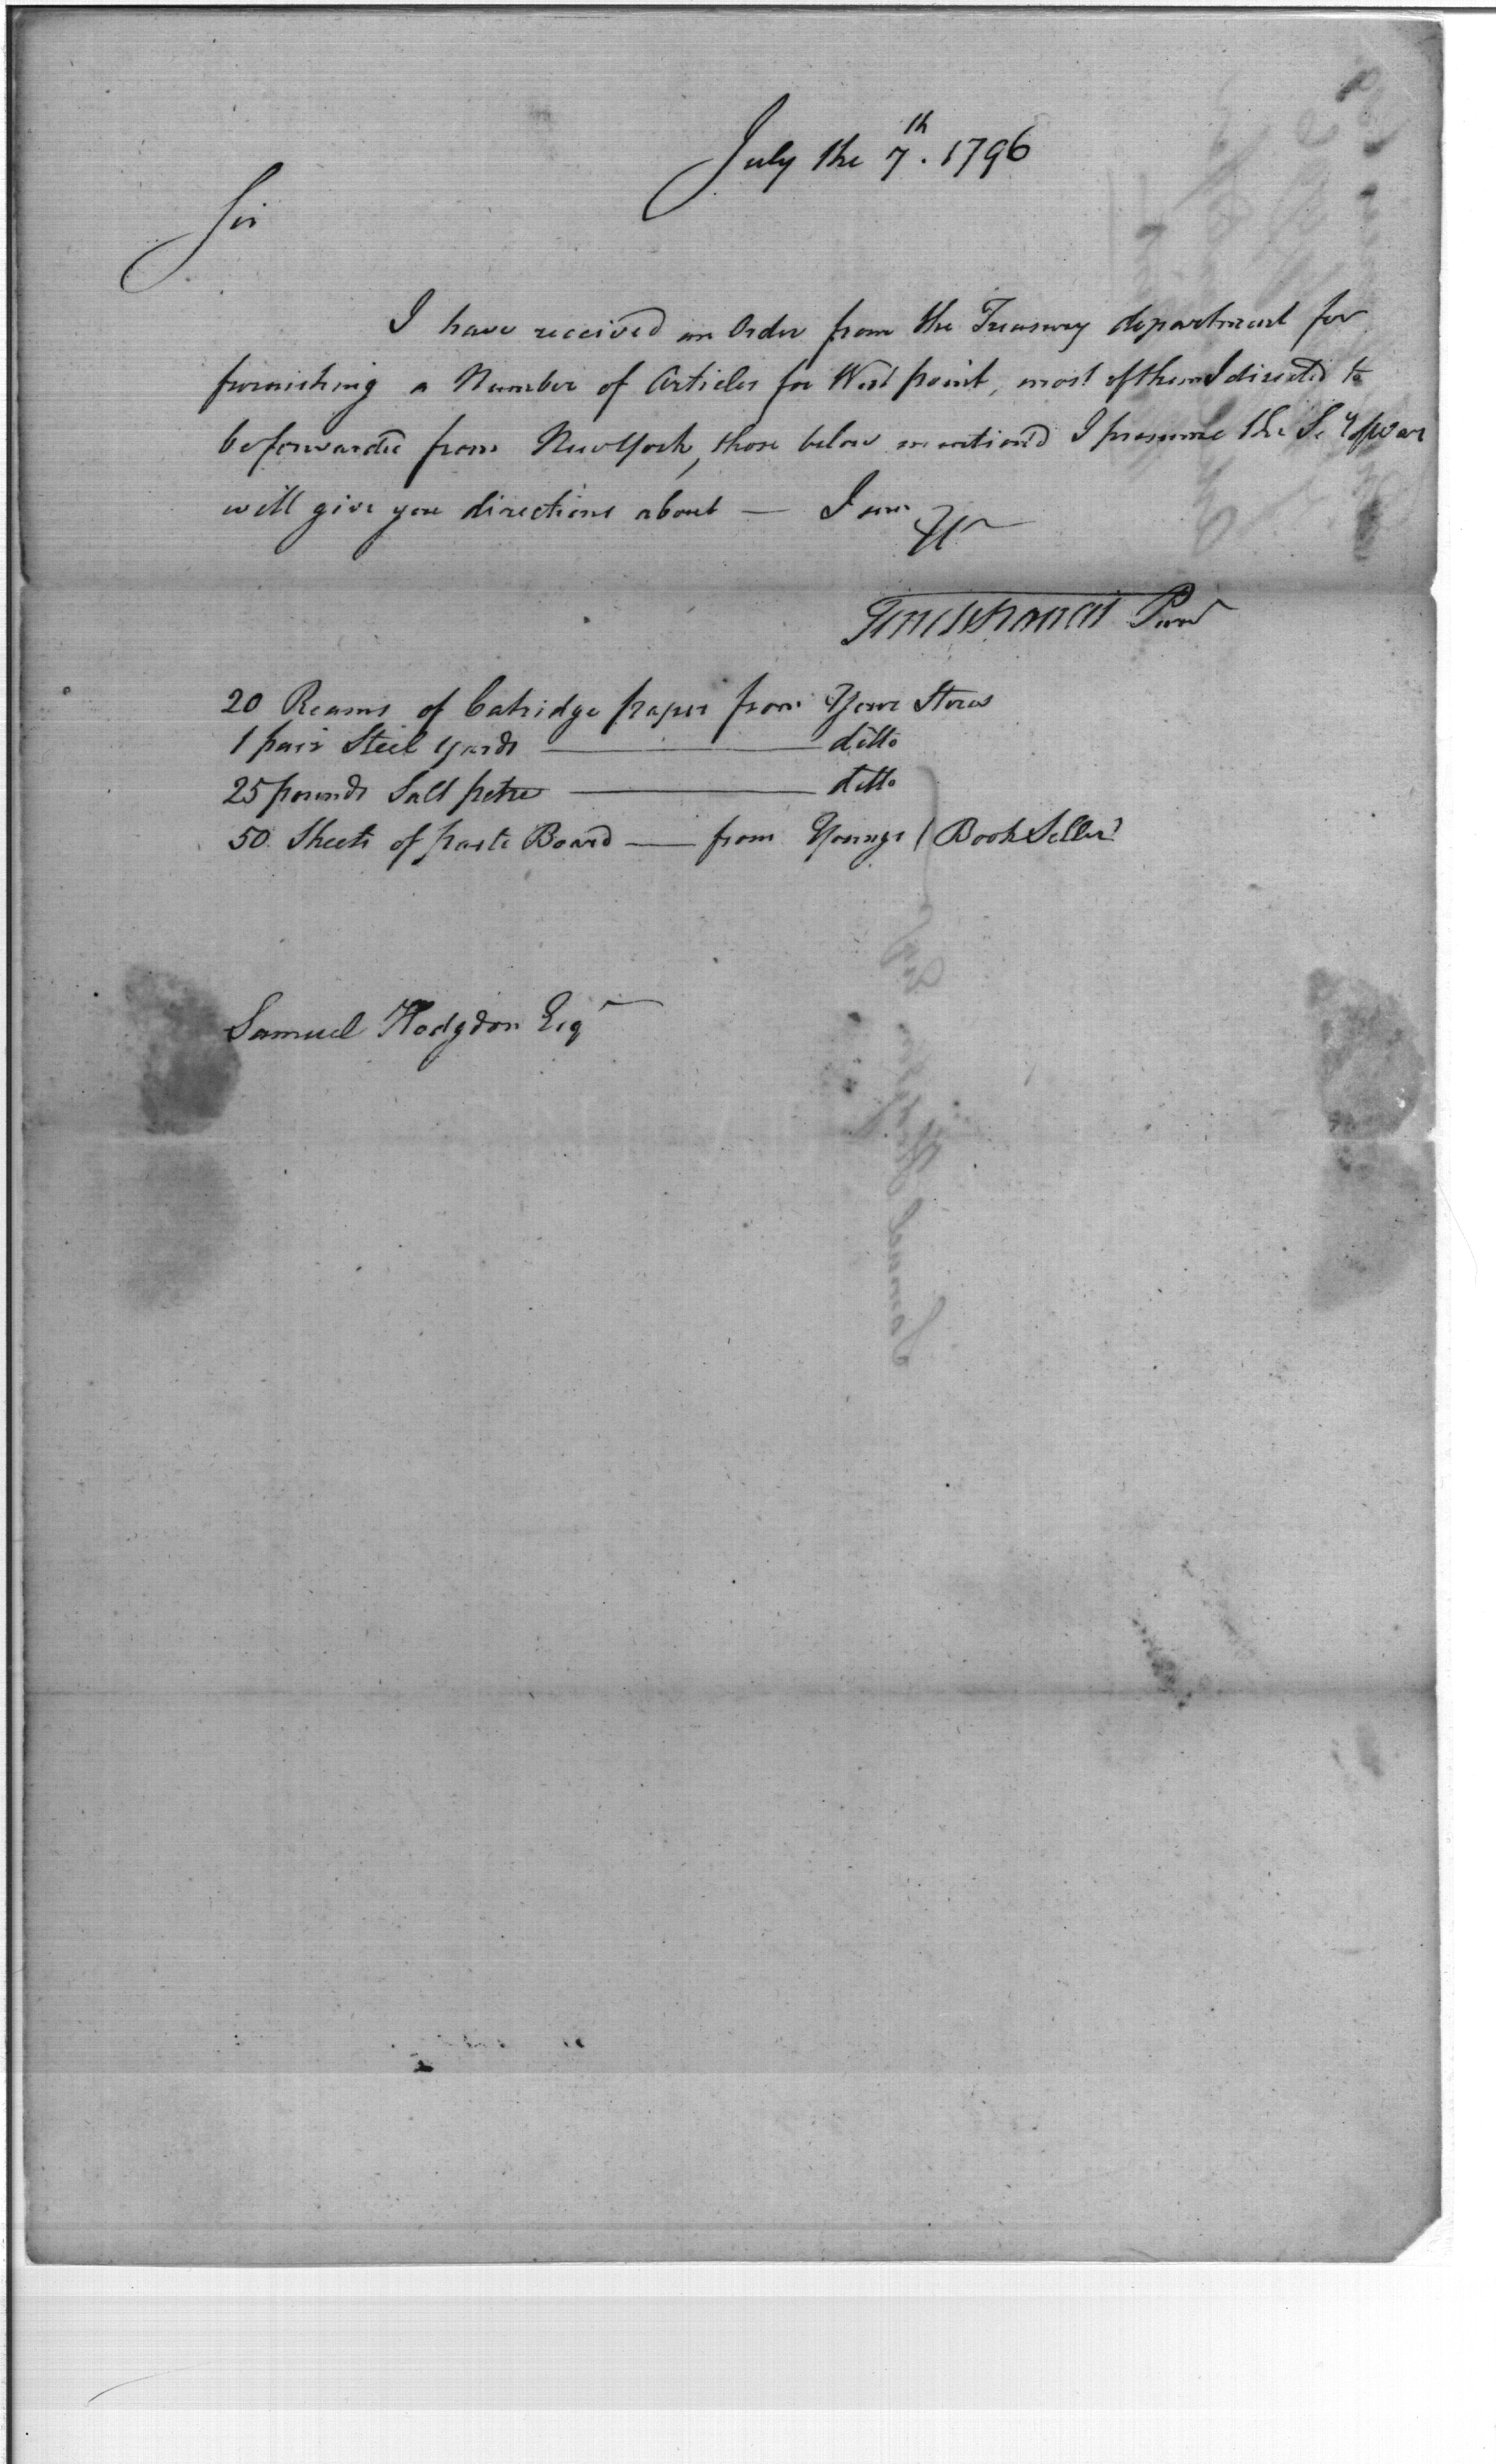 July the 7th. 1796
Sir
I have received an Order from the Treasury department for
furnishing a Number of Articles for West point, most of them I directed to
be forwarded from New York, those below mention'd I presume the Secy of War
will give you directions about — I am &c
Tench Francis Purvr
20 Reams of Catridge paper from Your Stores
1 pair Steel yards — ditto
25 pounds Salt petre — ditto
50 Sheets of paste Board — from Youngs (Book Seller)
Samuel Hodgdon Esqr